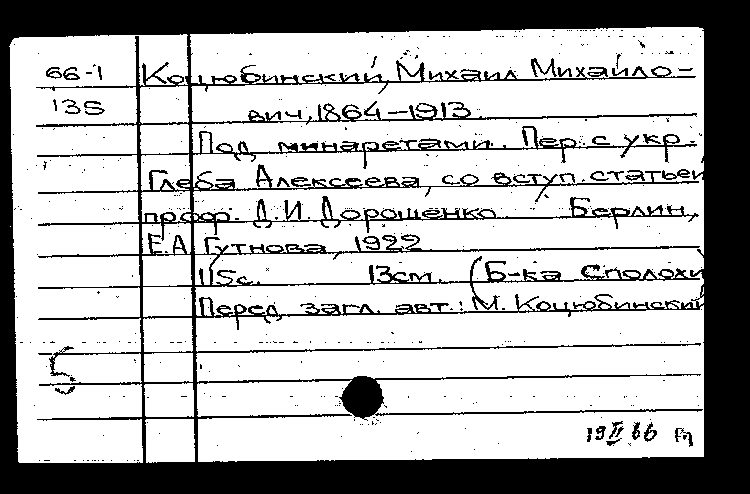 66-1 Коцюбинский, Михаил Михайло-
135 вич, 1864-1913.
Под минаретами. Пер. с укр.
Глеба Алексеева, со вступ. статьей
проф. Д.И. Дорошенко Берлин,
Е.А. Гутнова, 1922
115с. 13см. (Б-ка Сполохи
Перед загл. авт.: М. Коцюбинский
5
19 II 66